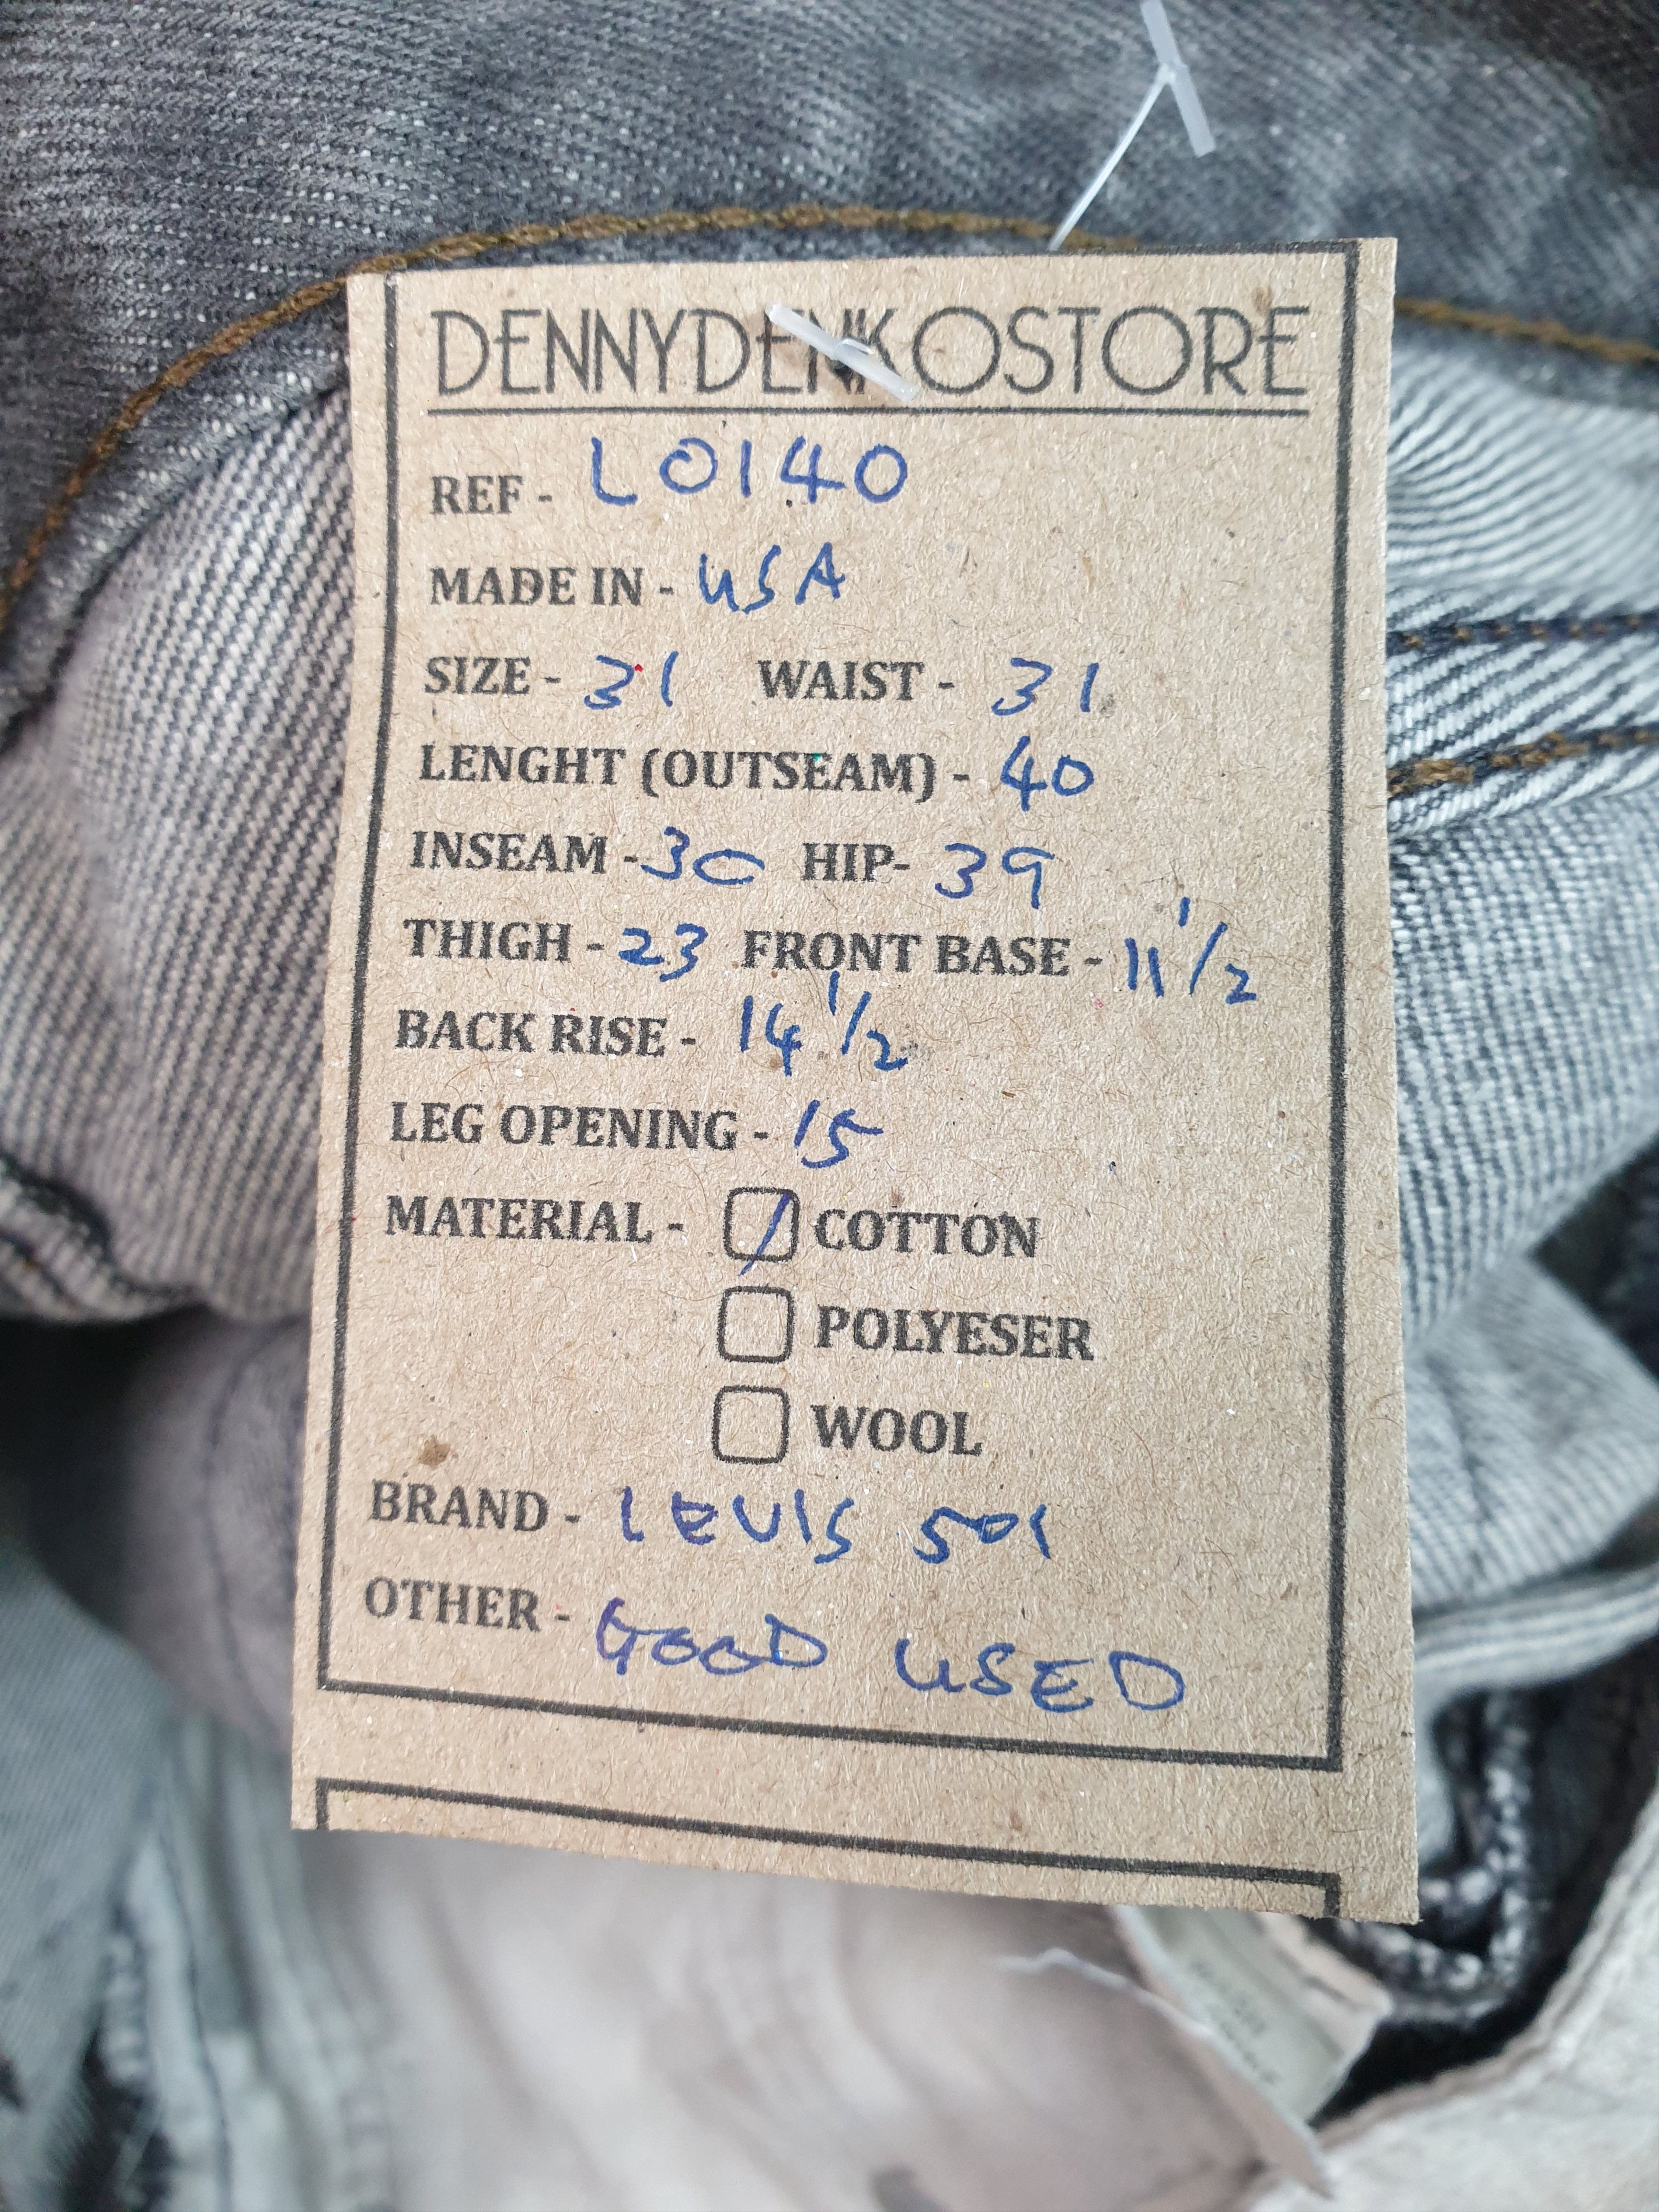 DENNYDENKOSTORE
REF - L0140
MADE IN - USA
SIZE - 31 WAIST - 31
LENGHT (OUTSEAM) - 40
INSEAM - 30 HIP- 39
THIGH - 23 FRONT BASE - 11 1/2
BACK RISE - 14 1/2
LEG OPENING - 15
MATERIAL - COTTON
POLYESER
WOOL
BRAND - LEVIS 501
OTHER - GOOD USED